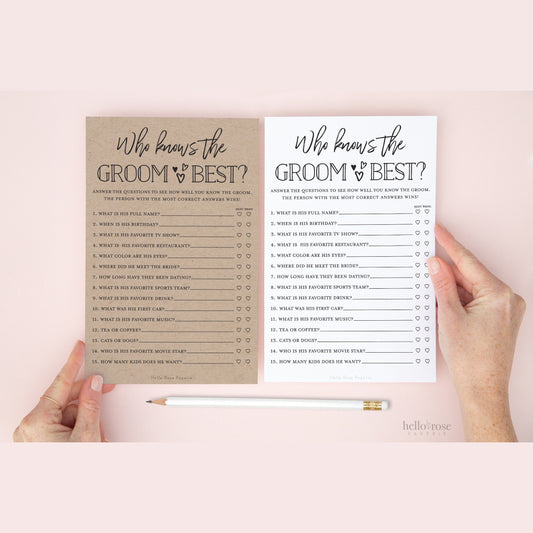 Who knows the
GROOM BEST?
ANSWER THE QUESTIONS TO SEE HOW WELL YOU KNOW THE GROOM.
THE PERSON WITH THE MOST CORRECT ANSWERS WINS!
1. WHAT IS HIS FULL NAME?
2. WHEN IS HIS BIRTHDAY?
3. WHAT IS HIS FAVORITE TV SHOW?
4. WHAT IS HIS FAVORITE RESTAURANT?
5. WHAT COLOR ARE HIS EYES?
6. WHERE DID HE MEET THE BRIDE?
7. HOW LONG HAVE THEY BEEN DATING?
8. WHAT IS HIS FAVORITE SPORTS TEAM?
9. WHAT IS HIS FAVORITE DRINK?
10. WHAT WAS HIS FIRST CAR?
11. WHAT IS HIS FAVORITE MUSIC?
12. TEA OR COFFEE?
13. CATS OR DOGS?
14. WHO IS HIS FAVORITE MOVIE STAR?
15. HOW MANY KIDS DOES HE WANT?
Hello Rose Paperie
Who knows the
GROOM BEST?
ANSWER THE QUESTIONS TO SEE HOW WELL YOU KNOW THE GROOM.
THE PERSON WITH THE MOST CORRECT ANSWERS WINS!
1. WHAT IS HIS FULL NAME?
2. WHEN IS HIS BIRTHDAY?
3. WHAT IS HIS FAVORITE TV SHOW?
4. WHAT IS HIS FAVORITE RESTAURANT?
5. WHAT COLOR ARE HIS EYES?
6. WHERE DID HE MEET THE BRIDE?
7. HOW LONG HAVE THEY BEEN DATING?
8. WHAT IS HIS FAVORITE SPORTS TEAM?
9. WHAT IS HIS FAVORITE DRINK?
10. WHAT WAS HIS FIRST CAR?
11. WHAT IS HIS FAVORITE MUSIC?
12. TEA OR COFFEE?
13. CATS OR DOGS?
14. WHO IS HIS FAVORITE MOVIE STAR?
15. HOW MANY KIDS DOES HE WANT?
Hello Rose Paperie
hello rose
PAPERIE